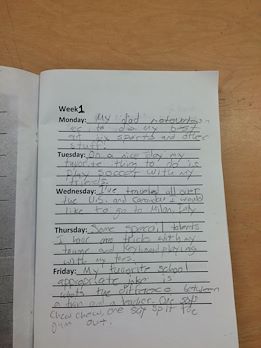 Week 1
Monday: My dad
to do my best
at my sports and other
stuff!
Tuesday: On a nice day my
favorite thing to do is
play soccer with my
friends.
Wednesday: I've traveled all over
the U.S. and Canada I would
like to go to Milan, Italy
Thursday: Some special talents
I have are tricks with my
tounge and keyboard playing
with my toes.
Friday: My favorite school
appropriate joke is
whats the difference between
a train and a teacher. One says
chew chew, one say spit the
gum out.